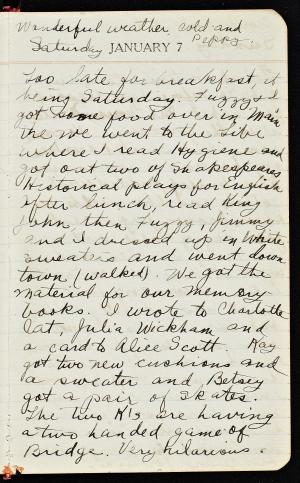 Wonderful weather, cold and
Saturday JANUARY 7
Too late for breakfast, it
being Saturday. Fuzzy & I
got some food over in Main
the we went to the Libe
where I read Hygiene and
got out two of Shakespeares
Historical plays for English
After lunch, read King
John, then Fuzzy, Jimmy
and I dressed up in White
sweaters and went down
town (walked). We got the
material for our memory
books. I wrote to Charlotte
Julia Wickham and
a card to Alice Scott. Kay
got two new cushions and
a sweater and Betsey
got a pair of skates.
The two K's are having
a two handed game of
Bridge. Very hilarious.